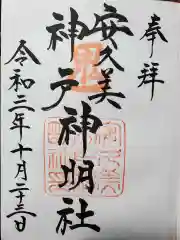 奉拝
安久美
神戸神明社
令和三年十月二十三日